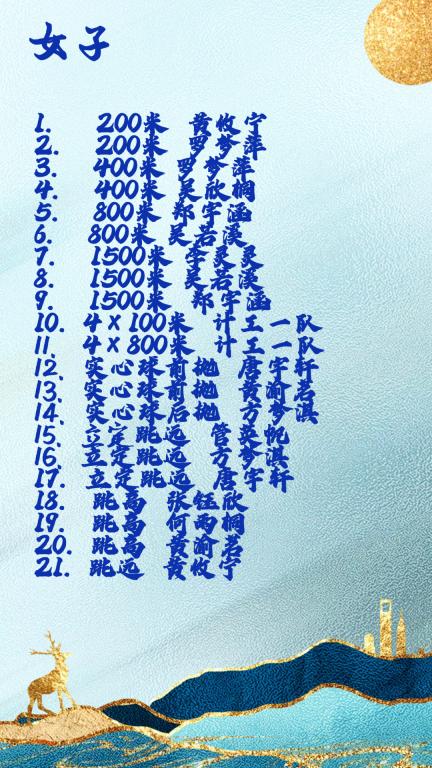 女子
1. 200米 黄攸宁
2. 200米 罗梦萍
3. 400米 罗梦萍
4. 400米 吴欣桐
5. 800米 郑宇涵
6. 800米 吴若溪
7. 1500米 李灵灵
8. 1500米 吴若溪
9. 1500米 郑宇涵
10. 4×100米 计工一队
11. 4×800米 计工一队
12. 实心球前抛 唐宇轩
13. 实心球前抛 黄渝若
14. 实心球后抛 方梦淇
15. 立定跳远 管英帆
16. 立定跳远 方梦淇
17. 立定跳远 唐宇轩
18. 跳高 张钰欣
19. 跳高 何雨桐
20. 跳高 黄渝若
21. 跳远 黄攸宁